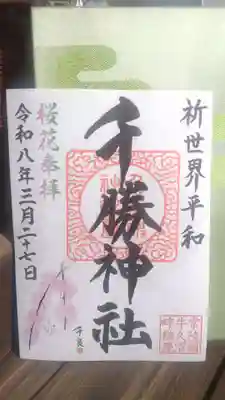 祈世界平和
千勝神社
桜花奉拝
令和八年三月二十七日